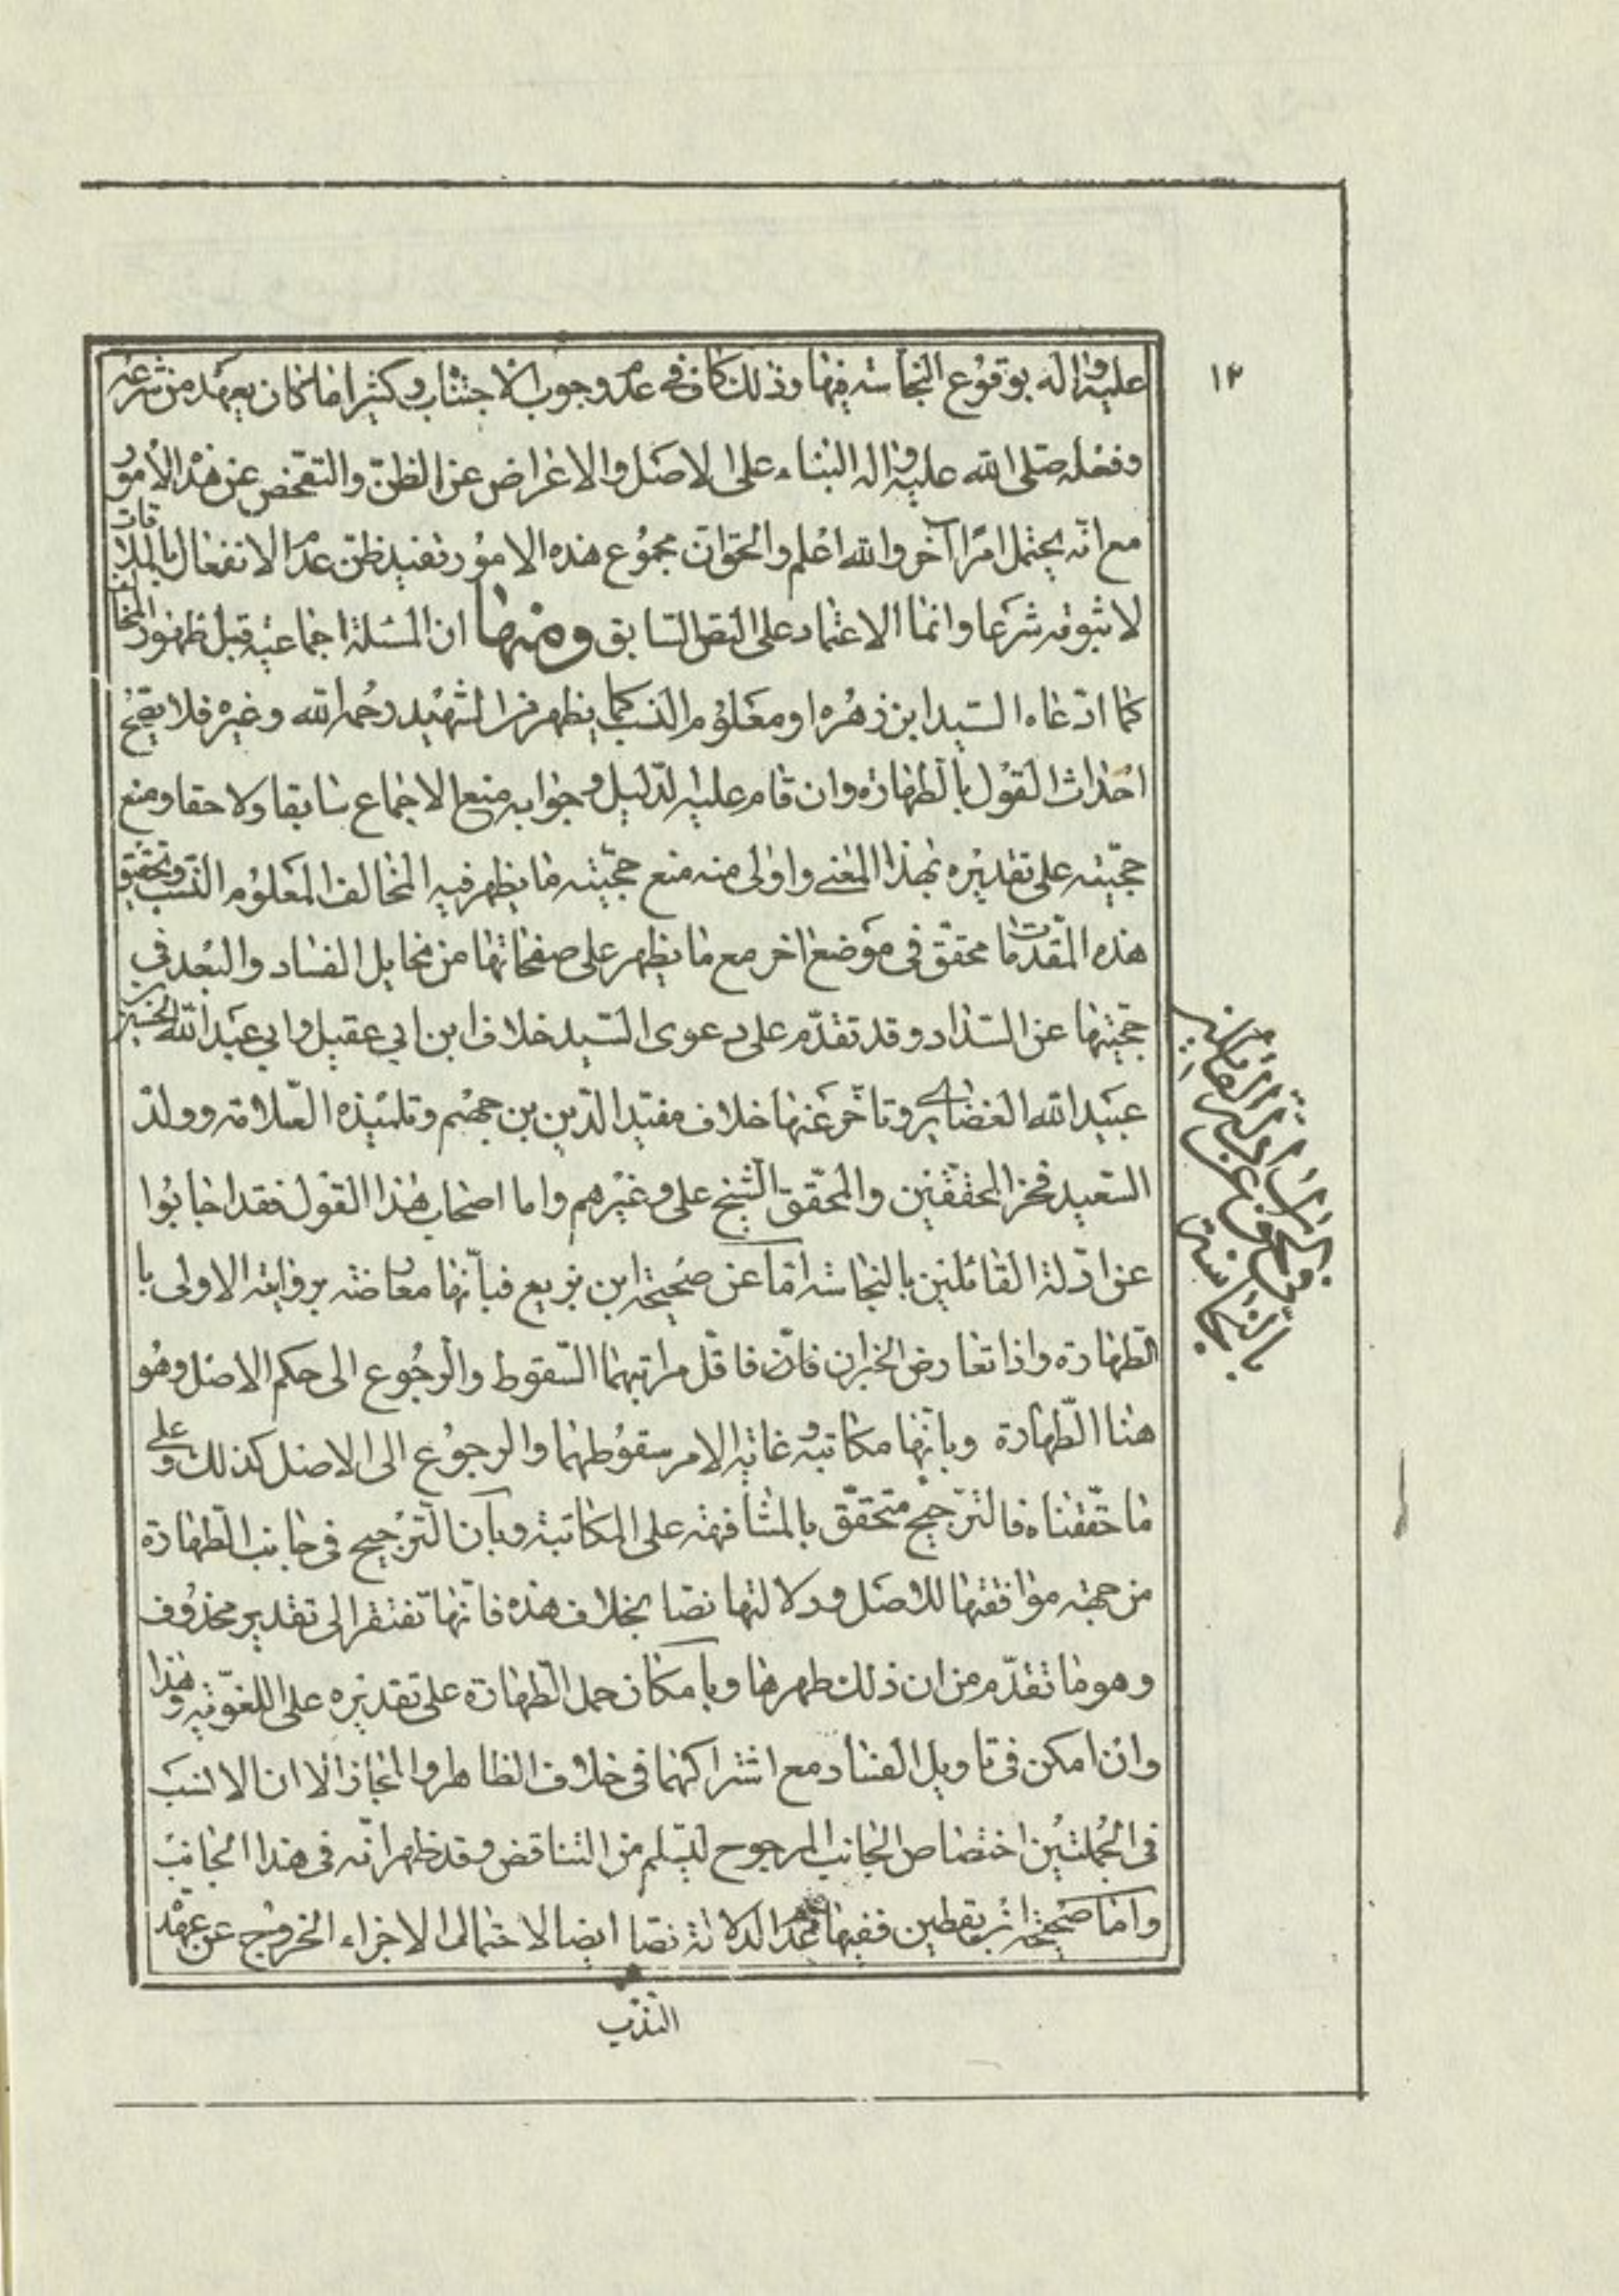 ١٢
عليه واله بوقوع النجاسة فيها وذلك كاف في عدم وجوب الاجتناب وكثيرا ما كان يعهد من شرعه
وفعله صلى الله عليه واله البناء على الاصل والاعراض عن الظن والتفحص عن هذه الامور
مع انه يحتمل امرا آخر والله اعلم والحق ان مجموع هذه الامور تفيد ظن عدم الانفعال بالملاقات
لا ثبوته شرعا وانما الاعتماد على النص السابق ومنها ان المسئلة اجماعية قبل ظهور المخالف
كما ادعاه السيد ابن زهره او معلوم النسب كما يظهر من الشهيد رحمه الله وغيره فلا يصح
احداث القول بالطهارة وان قام عليه الدليل وجوابه منع الاجماع سابقا ولاحقا ومنع
حجيته على تقديره بهذا المعنى واولى منه منع حجيته ما يظهر فيه المخالف المعلوم النسب وتحقيق
هذه المقدمات محقق في موضع اخر مع ما يظهر على صفحاتها من مخايل الفساد والبعد في
حجيتها عن السداد وقد تقدم على دعوى السيد خلاف ابن ابي عقيل وابي عبد الله الحسين بن
عبيد الله الغضايري وتاخر عنها خلاف مفيد الدين بن جهم وتلميذه العلامة وولده
السعيد فخر المحققين والمحقق الشيخ علي وغيرهم واما اصحاب هذا القول فقد اجابوا
عن ادلة القائلين بالنجاسة اما عن صحيحة ابن بزيع فبانها معارضة بروايته الاولى با
الطهارة واذا تعارض الخبران فاقل مراتبهما السقوط والرجوع الى حكم الاصل وهو
هنا الطهارة وبانها مكاتبة وغاية الامر سقوطهما والرجوع الى الاصل كذلك وعلى
ما حققناه فالترجيح متحقق بالمشافهة على المكاتبة وبان الترجيح في جانب الطهارة
من جهة موافقتها للاصل ودلالتها نصا بخلاف هذه فانها تفتقر الى تقدير محذوف
وهو ما تقدم من ان ذلك طهرها وبامكان حمل الطهارة على تقديره على اللغوية وهذا
وان امكن في تاويل الفساد مع اشتراكهما في خلاف الظاهر والمجاز الا ان الانسب
في الجملتين اختصاص الجانب المرجوح ليسلم من التناقض وقد ظهر انه في هذا الجانب
واما صحيحة ابن يقطين ففيها عدم الدلالة نصا ايضا لاحتمال الاجزاء الخروج عن عهدة
الندب
بالنجاسة